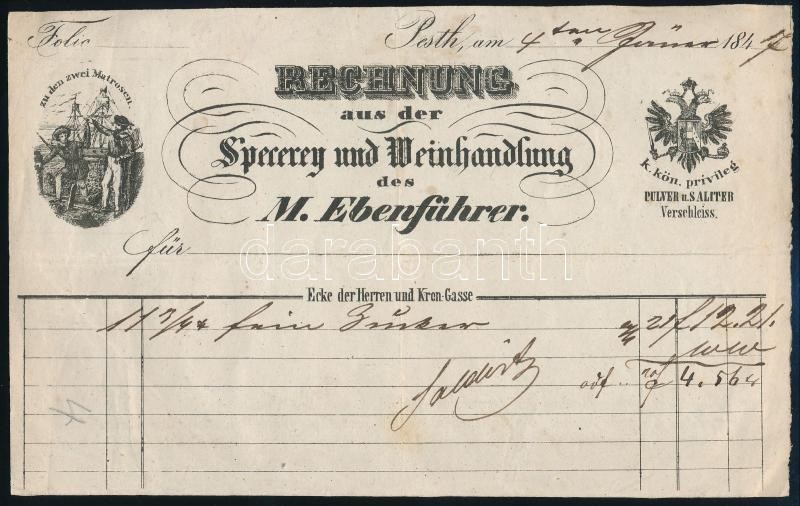 Folio Pesth, am 4ten Jäner 1847
zu den zwei Matrosen.
RECHNUNG
aus der
Specerey und Weinhandlung
des
M. Ebenführer.
k. kön. privileg
PULVER u. SALITER
Verschleiss.
für
darabanth
Ecke der Herren und Kron-Gasse
11 3/4 fein Zucker f 12.21.
WW
4.56